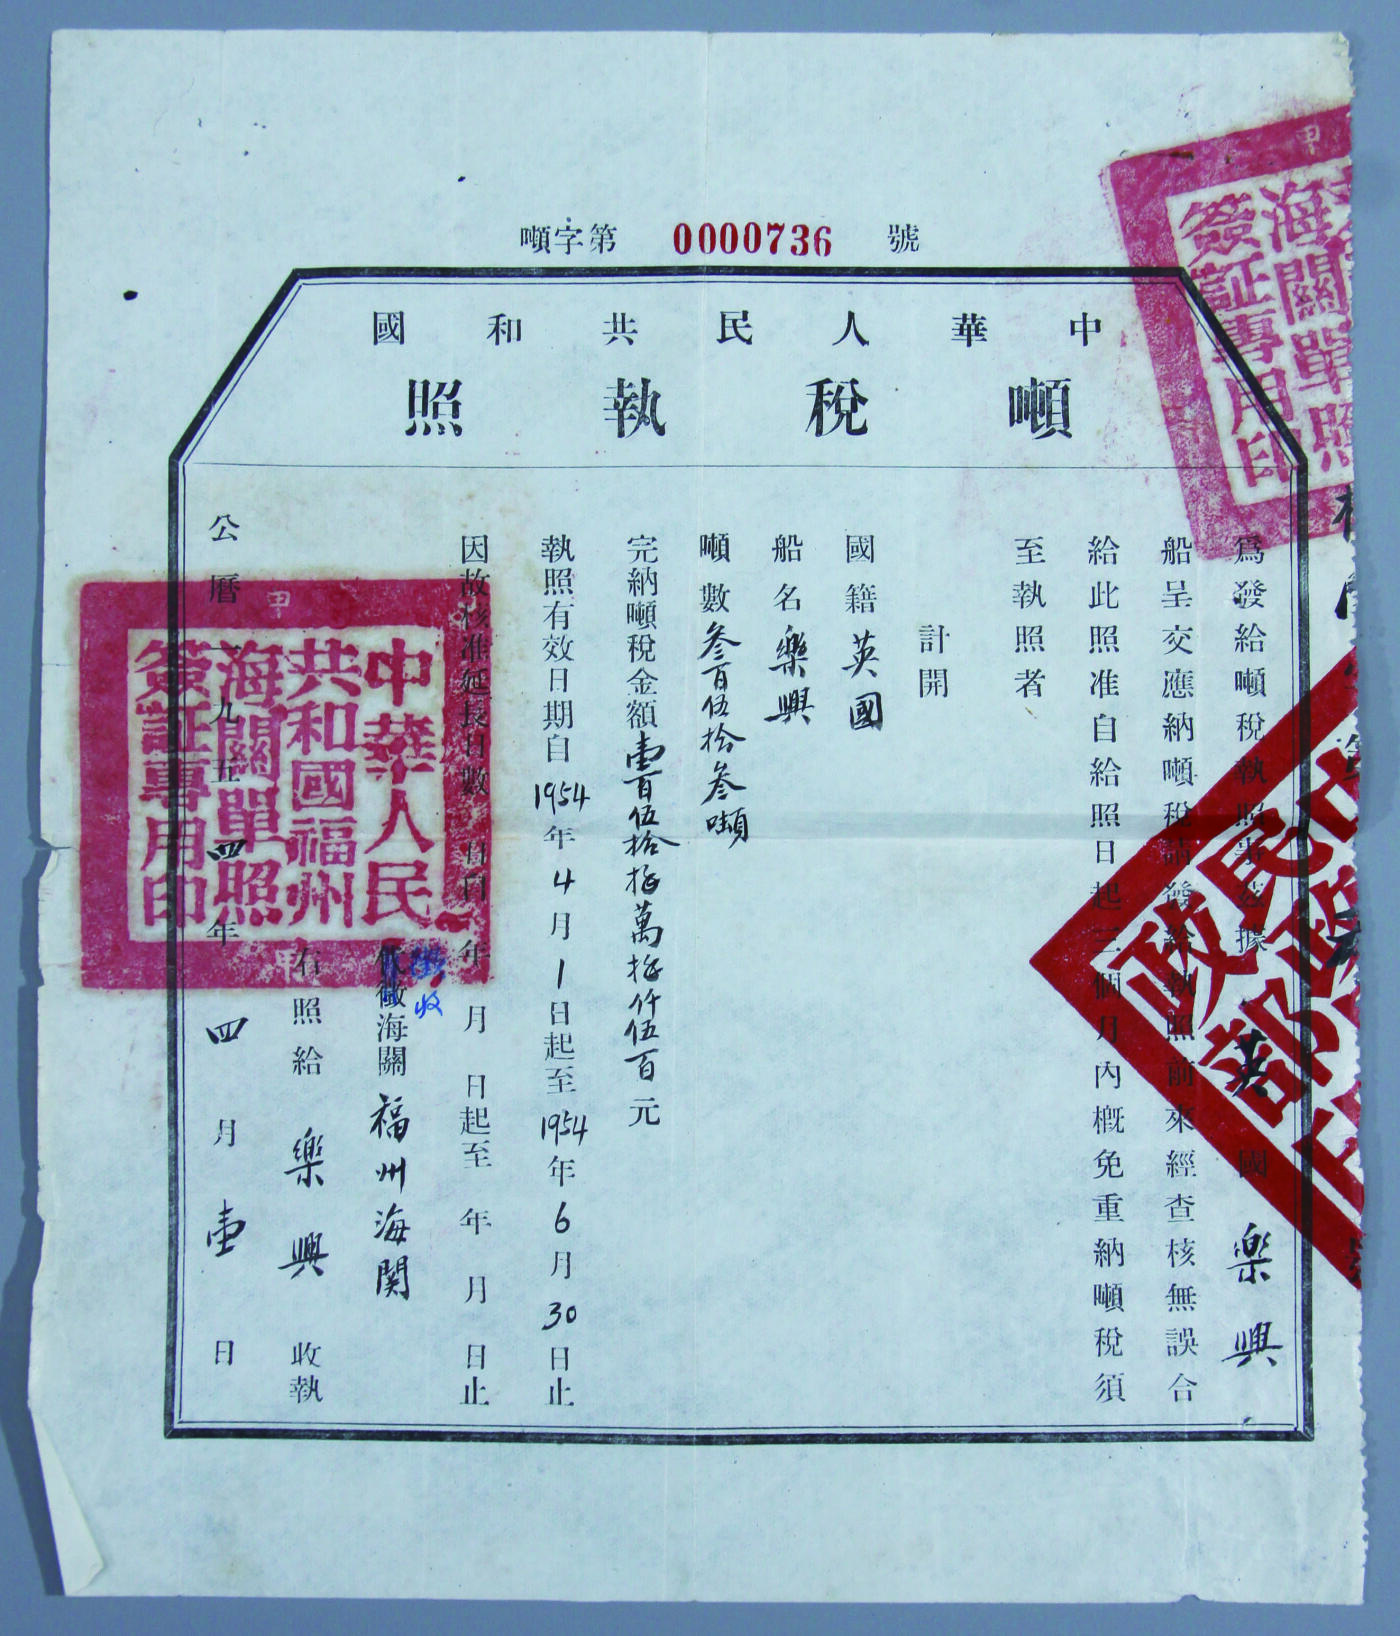 噸字第 0000736 號
中華人民共和國
噸稅執照
為發給噸稅執照事茲據 英 國 樂興
船呈交應納噸稅請發給執照前來經查核無誤合
給此照准自給照日起三個月內概免重納噸稅須
至執照者
計開
國籍 英國
船名 樂興
噸數 叁百伍拾叁噸
完納噸稅金額 壹百伍拾柒萬柒仟伍百 元
執照有效日期自 1954 年 4 月 1 日起至 1954 年 6 月 30 日止
因故核准延長日數 日自 年 月 日起至 年 月 日止
徵收
代徵海關 福州海関
右照給 樂興 收執
公曆一九五四年 四 月 壹 日
甲
中華人民
共和國福州
海關單照
簽証專用印
甲
甲
海關單照
簽証專用印
民政
部